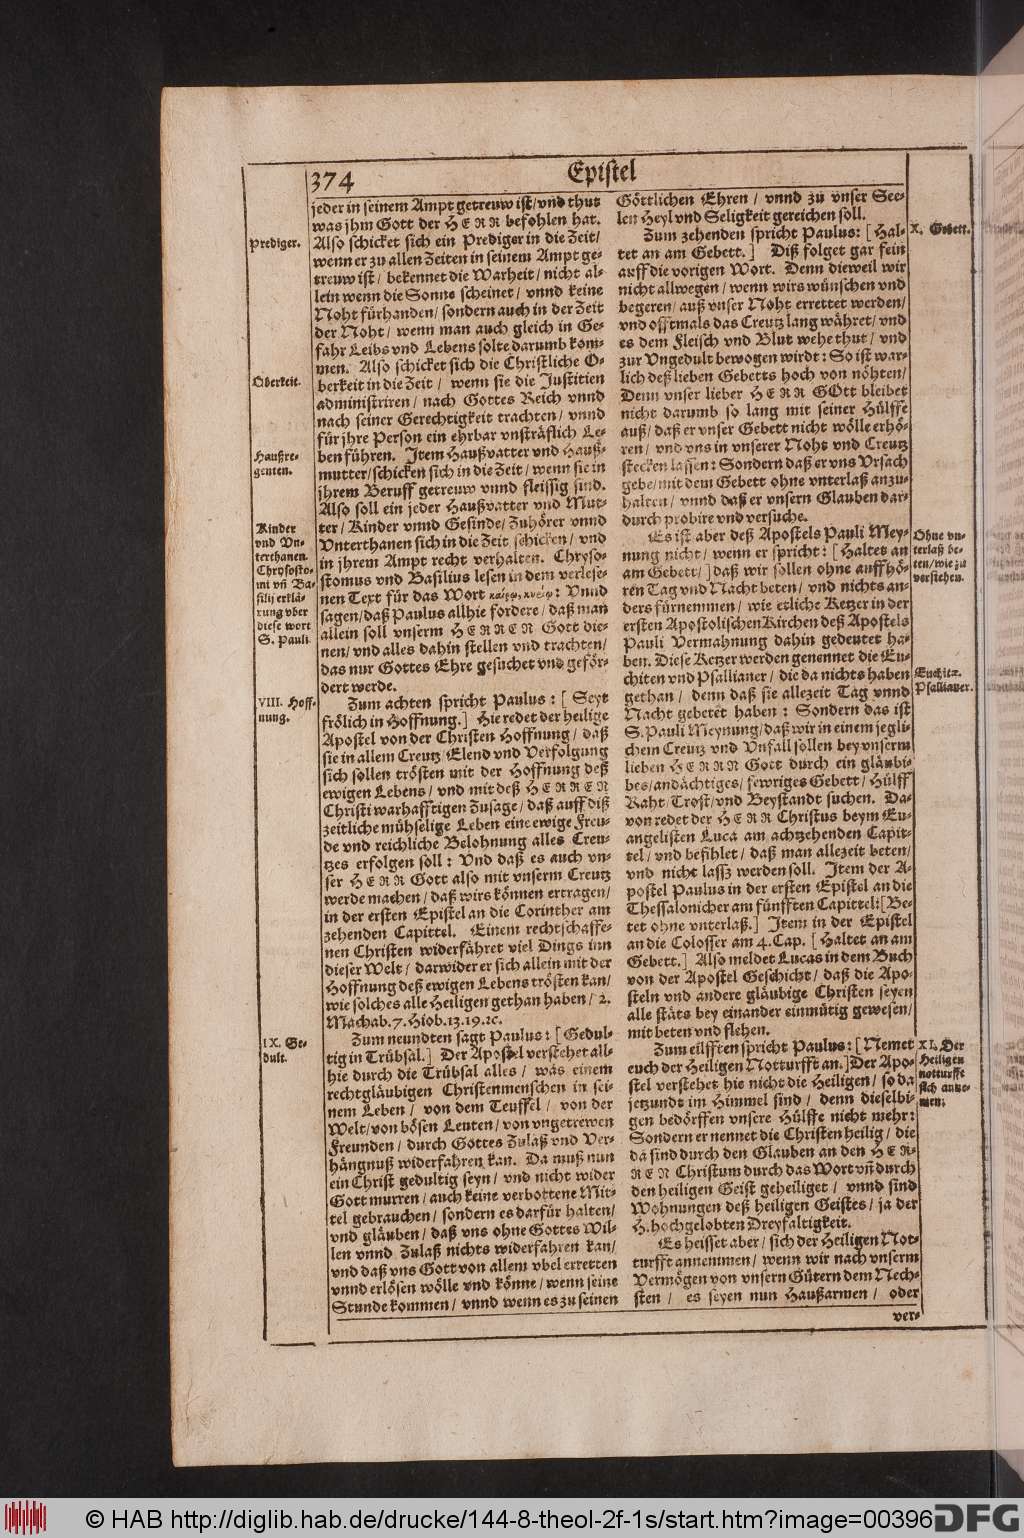 374
Epistel
jeder in seinem Ampt getreuw ist/vnd thut
was jhm Gott der HERR befohlen hat.
Also schicket sich ein Prediger in die Zeit/
wenn er zu allen Zeiten in seinem Ampt ge-
treuw ist/ bekennet die Warheit/ nicht al-
lein wenn die Sonne scheinet/ vnnd keine
Noht fürhanden/ sondern auch in der Zeit
der Noht/ wenn man auch gleich in Ge-
fahr Leibs vnd Lebens solte darumb kom-
men. Also schicket sich die Christliche O-
berkeit in die Zeit/ wenn sie die Justitien
administriren/ nach Gottes Reich vnnd
nach seiner Gerechtigkeit trachten/ vnnd
für jhre Person ein ehrbar vnsträflich Le-
ben führen. Item Haußvatter vnd Hauß-
mutter/schicken sich in die Zeit/ wenn sie in
jhrem Beruff getreuw vnnd fleissig sind.
Also soll ein jeder Haußvatter vnd Mut-
ter/ Kinder vnnd Gesinde/ Zuhörer vnnd
Vnterthanen sich in die Zeit schicken/ vnd
in jhrem Ampt recht verhalten. Chryso-
stomus vnd Basilius lesen in dem verlese-
nen Text für das Wort καίρῳ, κυρίῳ: Vnnd
sagen/daß Paulus allhie fordere/ daß man
allein soll vnserm HERREN Gott die-
nen/ vnd alles dahin stellen vnd trachten/
das nur Gottes Ehre gesuchet vnd geför-
dert werde.
Zum achten spricht Paulus: [Seyt
frölich in Hoffnung.] Hie redet der heilige
Apostel von der Christen Hoffnung/ daß
sie in allem Creutz/Elend vnd Verfolgung
sich sollen trösten mit der Hoffnung deß
ewigen Lebens/ vnd mit deß HERREN
Christi warhafftigen Zusage/ daß auff diß
zeitliche mühselige Leben eine ewige Freu-
de vnd reichliche Belohnung alles Creu-
tzes erfolgen soll: Vnd daß es auch vn-
ser HERR Gott also mit vnserm Creutz
werde machen/ daß wirs können ertragen/
in der ersten Epistel an die Corinther am
zehenden Capittel. Einem rechtschaffe-
nen Christen widerfähret viel Dings inn
dieser Welt/ darwider er sich allein mit der
Hoffnung deß ewigen Lebens trösten kan/
wie solches alle Heiligen gethan haben/ 2.
Machab. 7. Hiob. 13. 19. ꝛc.
Zum neundten sagt Paulus: [Gedul-
tig in Trübsal.] Der Apostel verstehet all-
hie durch die Trübsal alles/ was einem
rechtgläubigen Christenmenschen in sei-
nem Leben/ von dem Teuffel/ von der
Welt/von bösen Leuten/ von vngetrewen
Freunden/ durch Gottes Zulaß vnd Ver-
hängnuß widerfahren kan. Da muß nun
ein Christ gedultig seyn/ vnd nicht wider
Gott murren/ auch keine verbottene Mit-
tel gebrauchen/ sondern es darfür halten/
vnd gläuben/ daß vns ohne Gottes Wil-
len vnnd Zulaß nichts widerfahren kan/
vnd daß vns Gott von allem vbel erretten
vnnd erlösen wölle vnd könne/ wenn seine
Stunde kommen/ vnnd wenn es zu seinen
Prediger.
Oberkeit.
Haußre-
genten.
Kinder
vnd Vn-
terthanen.
Chrysosto-
mi vñ Ba-
silij erklä-
rung vber
diese wort
S. Pauli
VIII. Hoff-
nung.
IX. Ge-
dult.
Göttlichen Ehren/ vnnd zu vnser See-
len Heyl vnd Seligkeit gereichen soll.
Zum zehenden spricht Paulus: [Hal-
tet an am Gebett.] Diß folget gar fein
auff die vorigen Wort. Denn dieweil wir
nicht allwegen/ wenn wirs wünschen vnd
begeren/ auß vnser Noht errettet werden/
vnd offtmals das Creutz lang währet/ vnd
es dem Fleisch vnd Blut wehe thut/ vnd
zur Vngedult bewogen wirdt: So ist war-
lich deß lieben Gebetts hoch von nöhten/
Denn vnser lieber HERR GOtt bleibet
nicht darumb so lang mit seiner Hülffe
auß/ daß er vnser Gebett nicht wölle erhö-
ren/ vnd vns in vnserer Noht vnd Creutz
stecken lassen: Sondern daß er vns Vrsach
gebe/mit dem Gebett ohne vnterlaß anzu-
halten/ vnnd daß er vnsern Glauben dar-
durch probire vnd versuche.
Es ist aber deß Apostels Pauli Mey-
nung nicht/ wenn er spricht: [Haltet an
am Gebett/] daß wir sollen ohne auffhö-
ren Tag vnd Nacht beten/ vnd nichts an-
ders fürnemmen/ wie etliche Ketzer in der
ersten Apostolischen Kirchen deß Apostels
Pauli Vermahnung dahin gedeutet ha-
ben. Diese Ketzer werden genennet die Eu-
chiten vnd Psallianer/ die da nichts haben
gethan/ denn daß sie allezeit Tag vnnd
Nacht gebetet haben: Sondern das ist
S. Pauli Meynung/daß wir in einem jegli-
chem Creutz vnd Vnfall sollen bey vnserm
lieben HERRN Gott durch ein gläubi-
bes/andächtiges/ fewriges Gebett/ Hülff
Raht/ Trost/ vnd Beystandt suchen. Da-
von redet der HERR Christus beym Eu-
angelisten Luca am achtzehenden Capit-
tel/ vnd befihlet/ daß man allezeit beten/
vnd nicht lassz werden soll. Item der A-
postel Paulus in der ersten Epistel an die
Thessalonicher am fünfften Capittel:[Be-
tet ohne vnterlaß.] Item in der Epistel
an die Colosser am 4. Cap. [Haltet an am
Gebett.] Also meldet Lucas in dem Buch
von der Apostel Geschicht/ daß die Apo-
steln vnd andere gläubige Christen seyen
alle stäts bey einander einmütig gewesen/
mit beten vnd flehen.
Zum eilfften spricht Paulus: [Nemet
euch der Heiligen Notturfft an.] Der Apo-
stel verstehet hie nicht die Heiligen/ so da
jetzundt im Himmel sind/ denn dieselbi-
gen bedörffen vnsere Hülffe nicht mehr:
Sondern er nennet die Christen heilig/ die
da sind durch den Glauben an den HER-
REN Christum durch das Wort vñ durch
den heiligen Geist geheiliget/ vnnd sind
Wohnungen deß heiligen Geistes/ ja der
H. hochgelobten Dreyfaltigkeit.
Es heisset aber/ sich der Heiligen Not-
turfft annemmen/ wenn wir nach vnserm
Vermögen von vnsern Gütern dem Nech-
sten/ es seyen nun Haußarmen/ oder
ver-
X. Gebett.
Ohne vn-
terlaß be-
ten/wie zu
verstehen.
Euchitæ.
Psallianer.
XI. Der
Heiligen
notturfft
sich anne-
men.
© HAB http://diglib.hab.de/drucke/144-8-theol-2f-1s/start.htm?image=00396
DFG